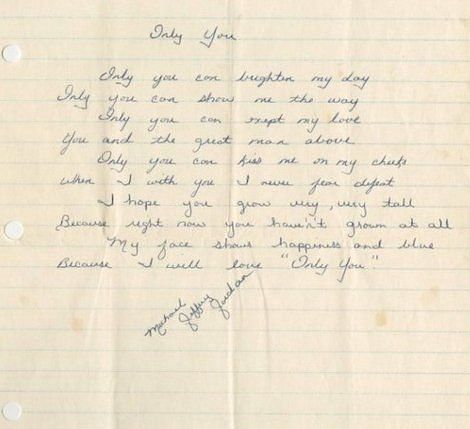 Only You
Only you can brighten my day
Only you can show me the way
Only you can my love
You and the great man above
Only you can kiss me on my cheek
When I with you I never fear defeat
I hope you grow very, very tall
Because right now you haven't grown at all
My face shows happiness and blue
Because I will love "Only You"
Michael Jeffrey Jordan